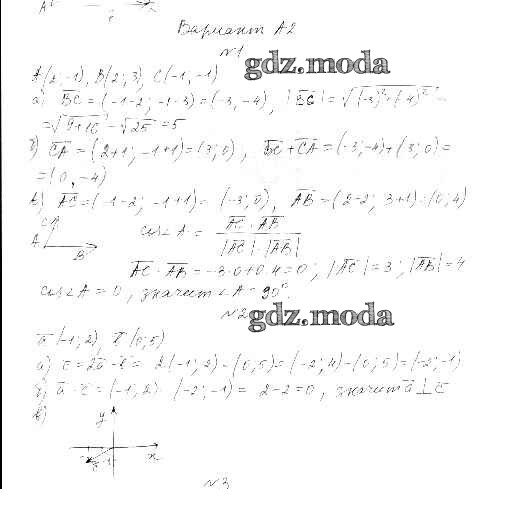 Вариант А2
№1
gdz.moda
A(2;-1), B(2;3), C(-1,-1)
а) BC = (-1-2; -1-3) = (-3,-4), |BC| = √((-3)²+(-4)²) =
= √(9+16) = √25 = 5
б) CA = (2+1; -1+1) = (3;0), BC + CA = (-3;-4)+(3;0) =
= (0,-4)
в) AC = (-1-2; -1+1) = (-3;0), AB = (2-2; 3+1) = (0;4)
C
A
B
cos∠A = AC · AB / |AC| · |AB|
AC · AB = -3·0+0·4=0; |AC| = 3; |AB| = 4
cos∠A = 0, значит ∠A = 90°.
№2
gdz.moda
a(-1;2), b(0;5)
а) c = 2a - b = 2(-1;2) - (0,5) = (-2;4) - (0;5) = (-2;-1)
б) a · c = (-1,2) · (-2;-1) = 2-2=0, значит a ⊥ c
в)
y
x
№3